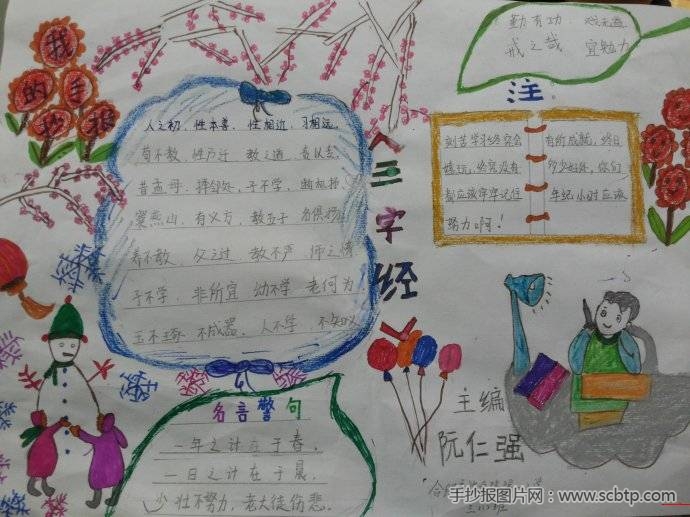 我的手抄报
人之初，性本善，性相近，习相远，
苟不教，性乃迁，教之道，贵以专，
昔孟母，择邻处，子不学，断机杼，
窦燕山，有义方，教五子，名俱扬，
养不教，父之过，教不严，师之惰
子不学，非所宜，幼不学，老何为，
玉不琢，不成器，人不学，不知义
《三字经》
勤有功，戏无益
戒之哉，宜勉力
注
刻苦学习终究会
有所成就，终日
嬉玩，终究没有
都应该牢牢记住
年纪小时应该
努力啊！
名言警句
一年之计在于春，
一日之计在于晨，
少壮不努力，老大徒伤悲。
主编
阮仁强
手抄报图片网
www.scbtp.com